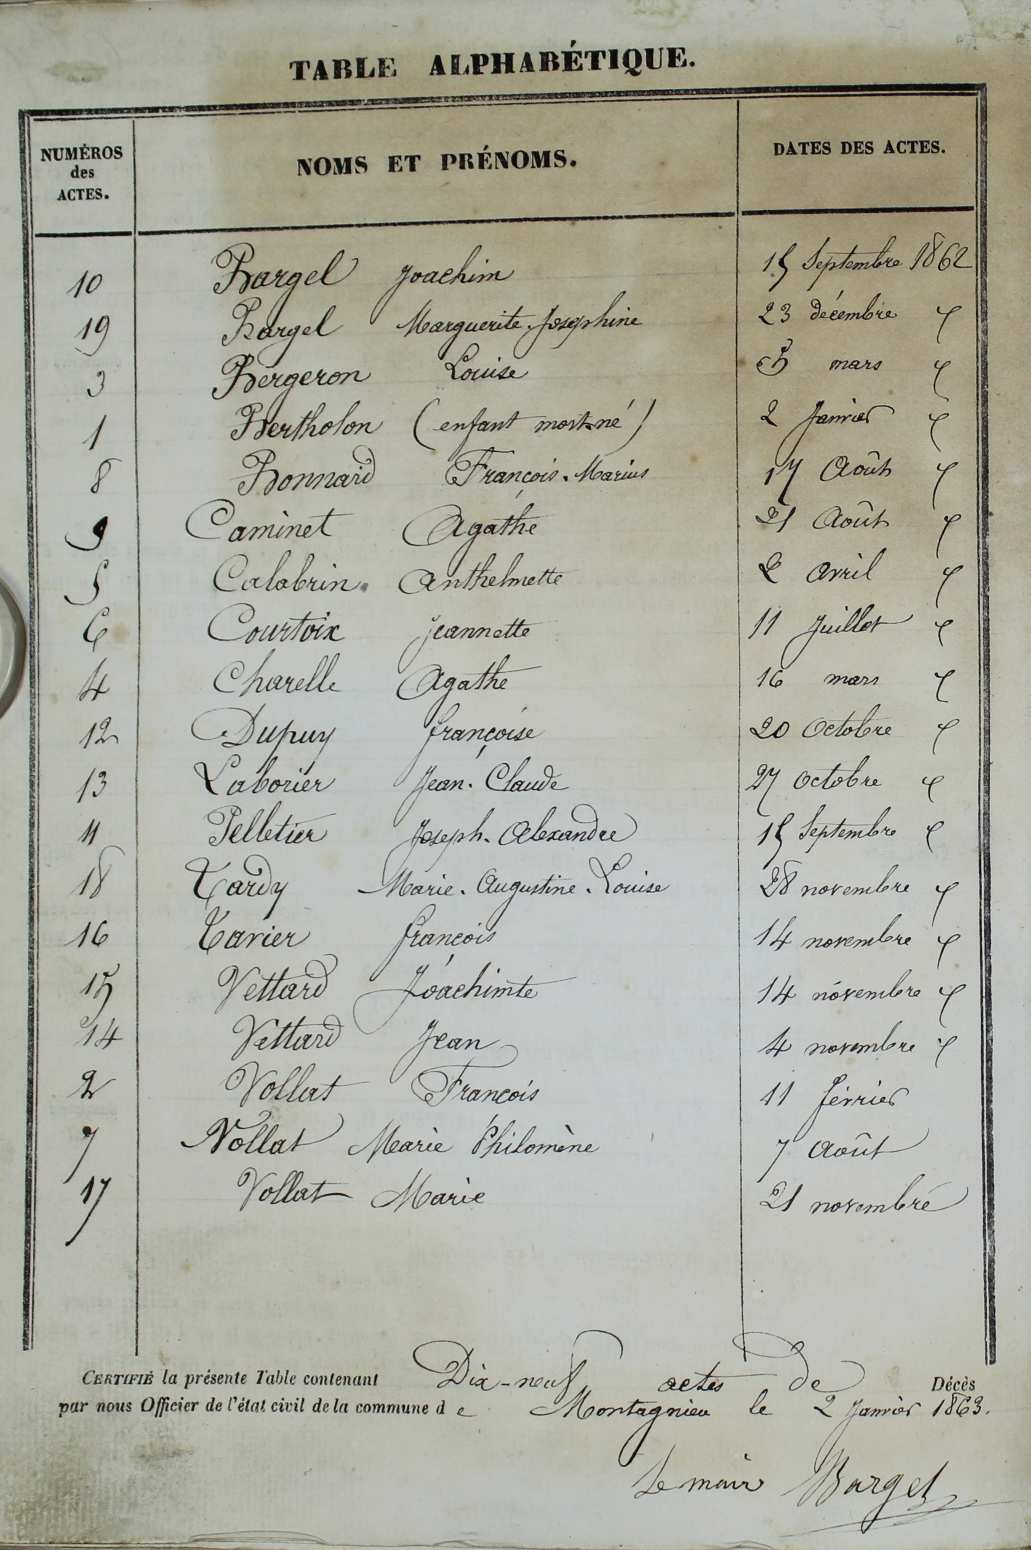 TABLE ALPHABÉTIQUE.
NUMÉROS des ACTES. NOMS ET PRÉNOMS. DATES DES ACTES.
10 Bargel Joachim 15 Septembre 1862
19 Bargel Marguerite Josephine 23 décembre "
3 Bergeron Louise 5 mars "
1 Bertholon (enfant mort-né) 2 Janvier "
8 Bonnard François-Marius 17 Août "
9 Caminet Agathe 21 Août "
5 Calabrin Anthelmette 2 avril "
6 Courtoix Jeannette 11 Juillet "
4 Charelle Agathe 16 mars "
12 Dupuy françoise 20 Octobre "
13 Laborier Jean-Claude 27 octobre "
11 Pelletier Joseph-Alexandre 15 Septembre "
18 Tardy Marie-Augustine-Louise 28 novembre "
16 Tavier françois 14 novembre "
15 Vettard Joachimte 14 novembre "
14 Vettard Jean 4 novembre "
2 Vollat François 11 février
7 Vollat Marie Philomène 7 Août
17 Vollat Marie 21 novembre
CERTIFIÉ la présente Table contenant Dix-neuf actes de Décès
par nous Officier de l'état civil de la commune de Montagnieu le 2 Janvier 1863.
Le mair Bargel